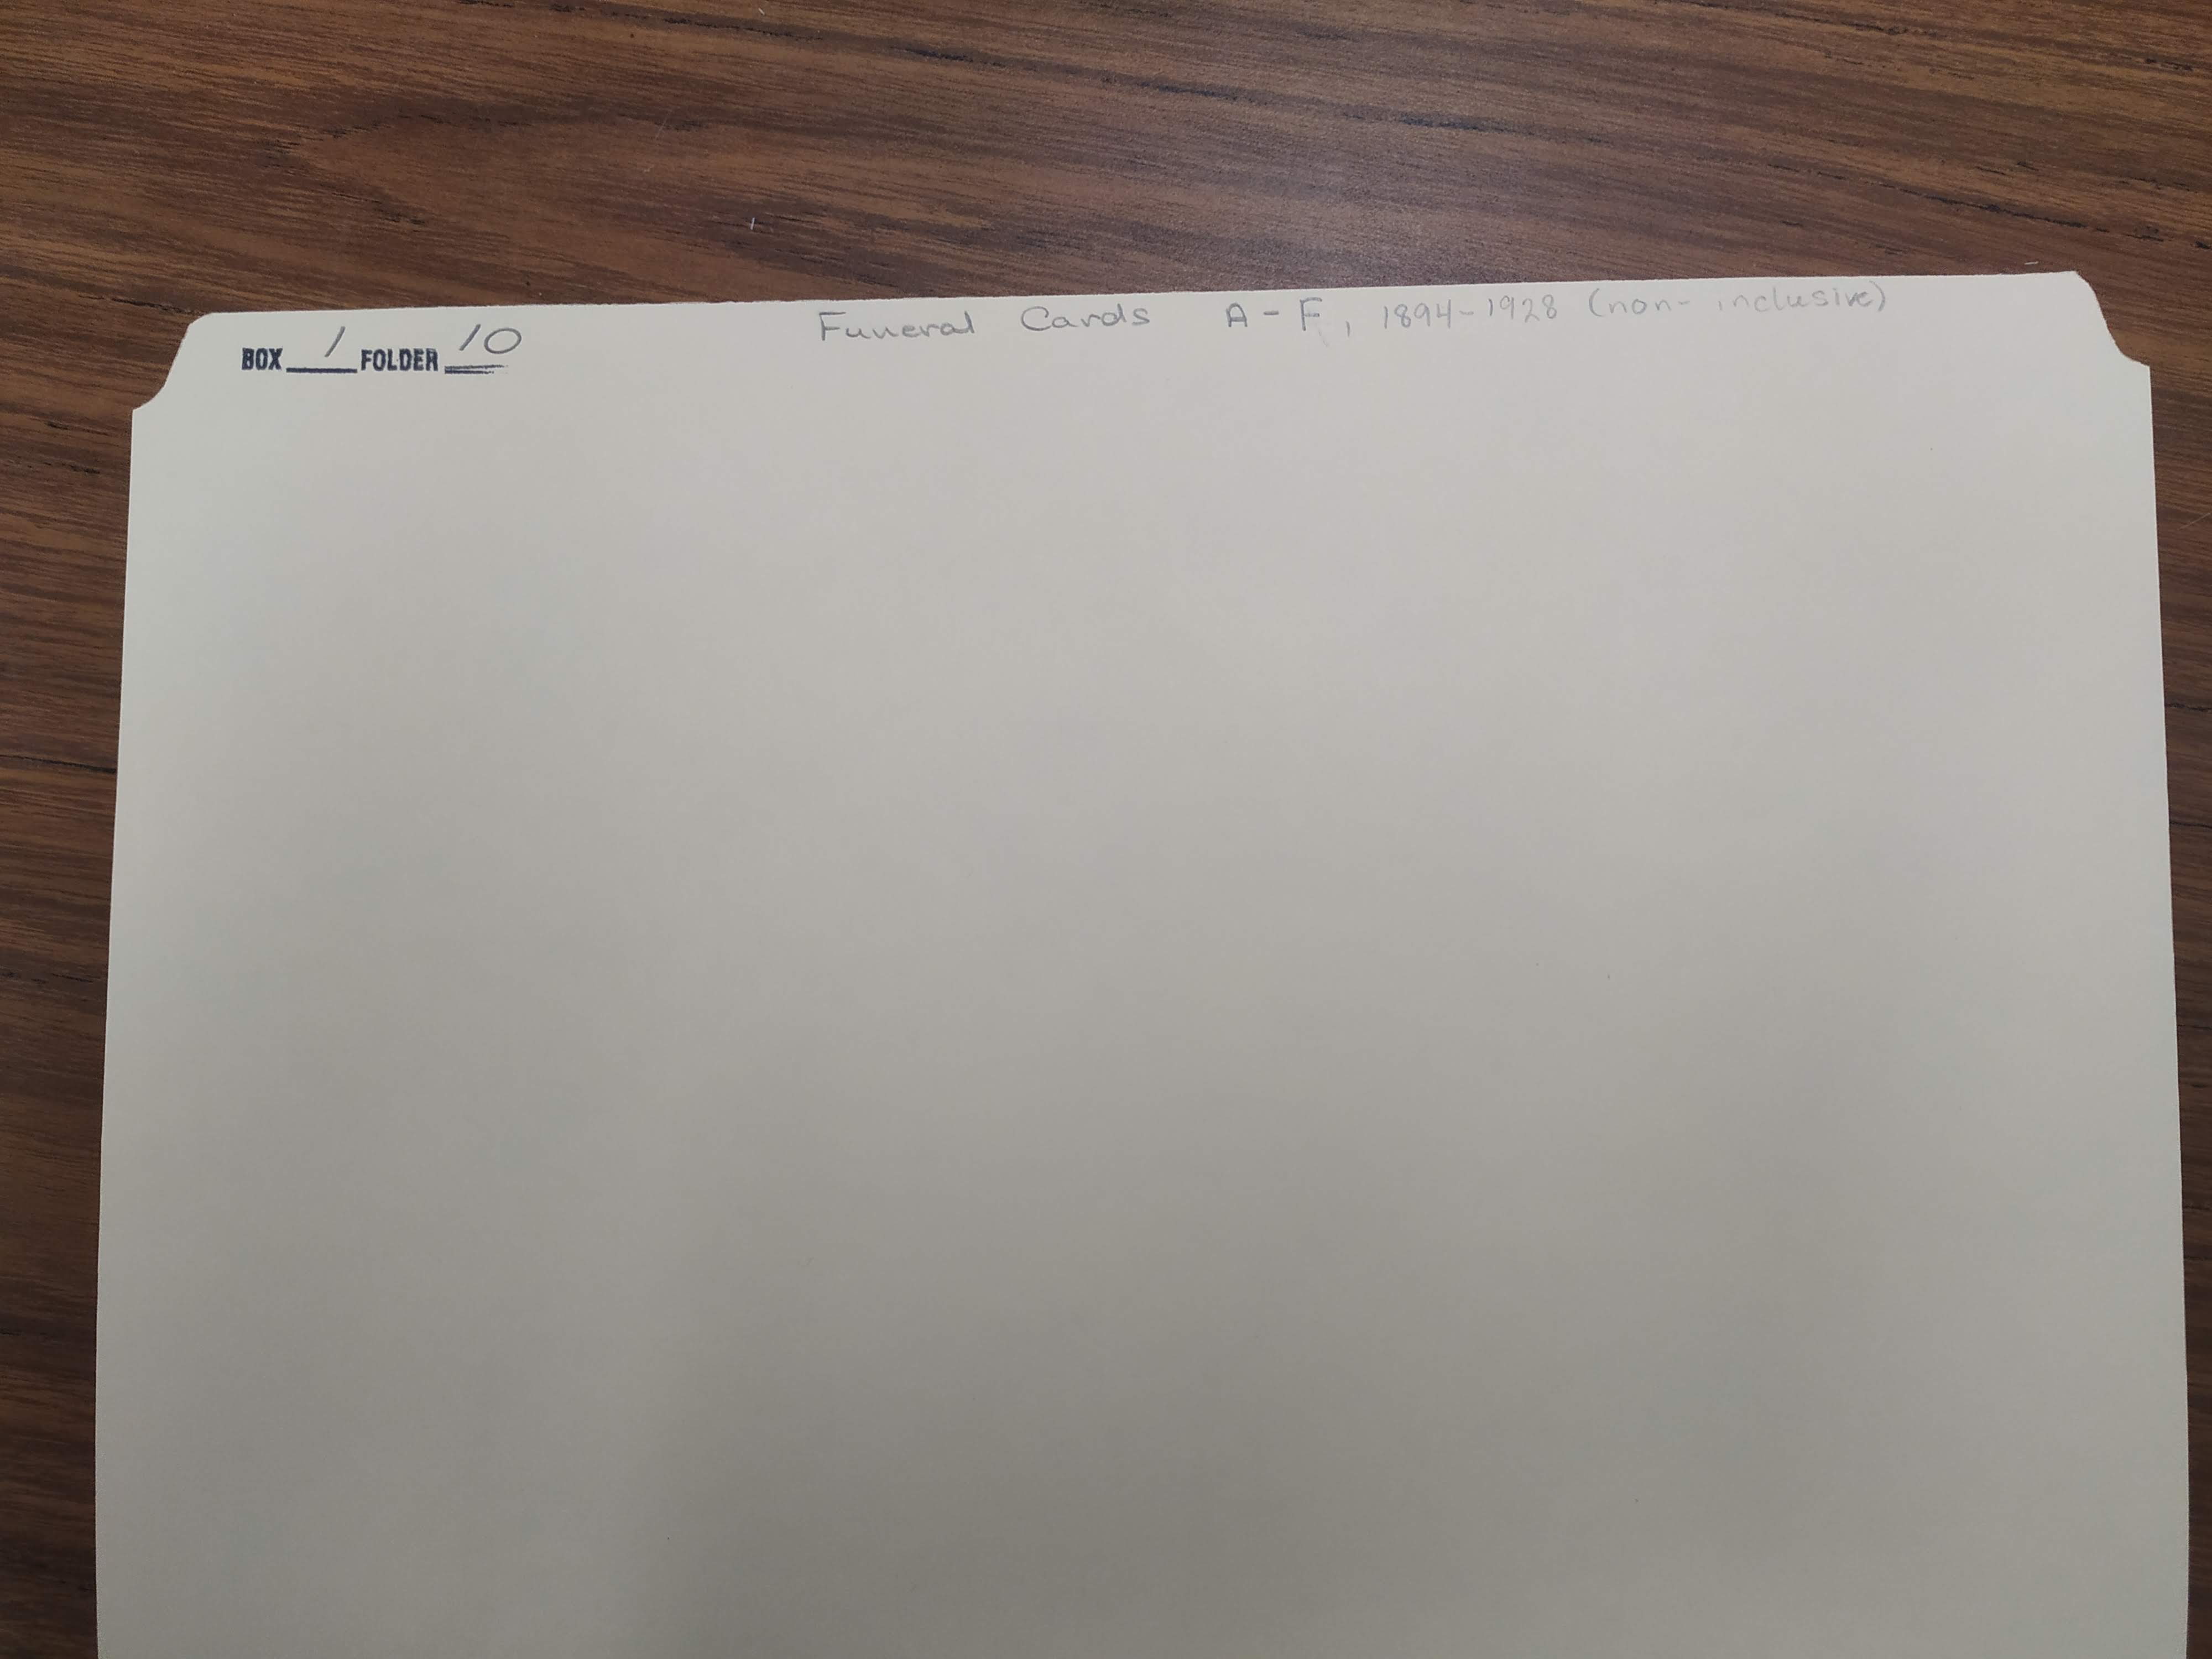 BOX 1 FOLDER 10 Funeral Cards A-F, 1894-1928 (non-inclusive)